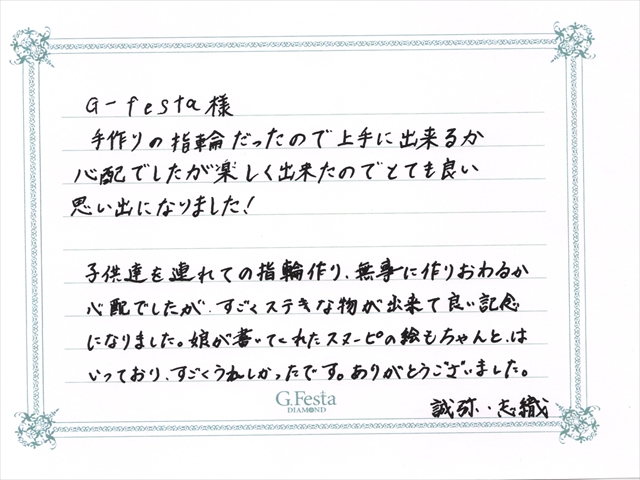 G-festa様
手作りの指輪だったので上手に出来るか
心配でしたが楽しく出来たのでとても良い
思い出になりました！
子供達を連れての指輪作り、無事に作りおわるか
心配でしたが、すごくステキな物が出来て良い記念
になりました。娘が書いてくれたスヌーピの絵もちゃんと、は
いっており、すごくうれしかったです。ありがとうございました。
G.Festa
DIAMOND
誠弥・志織